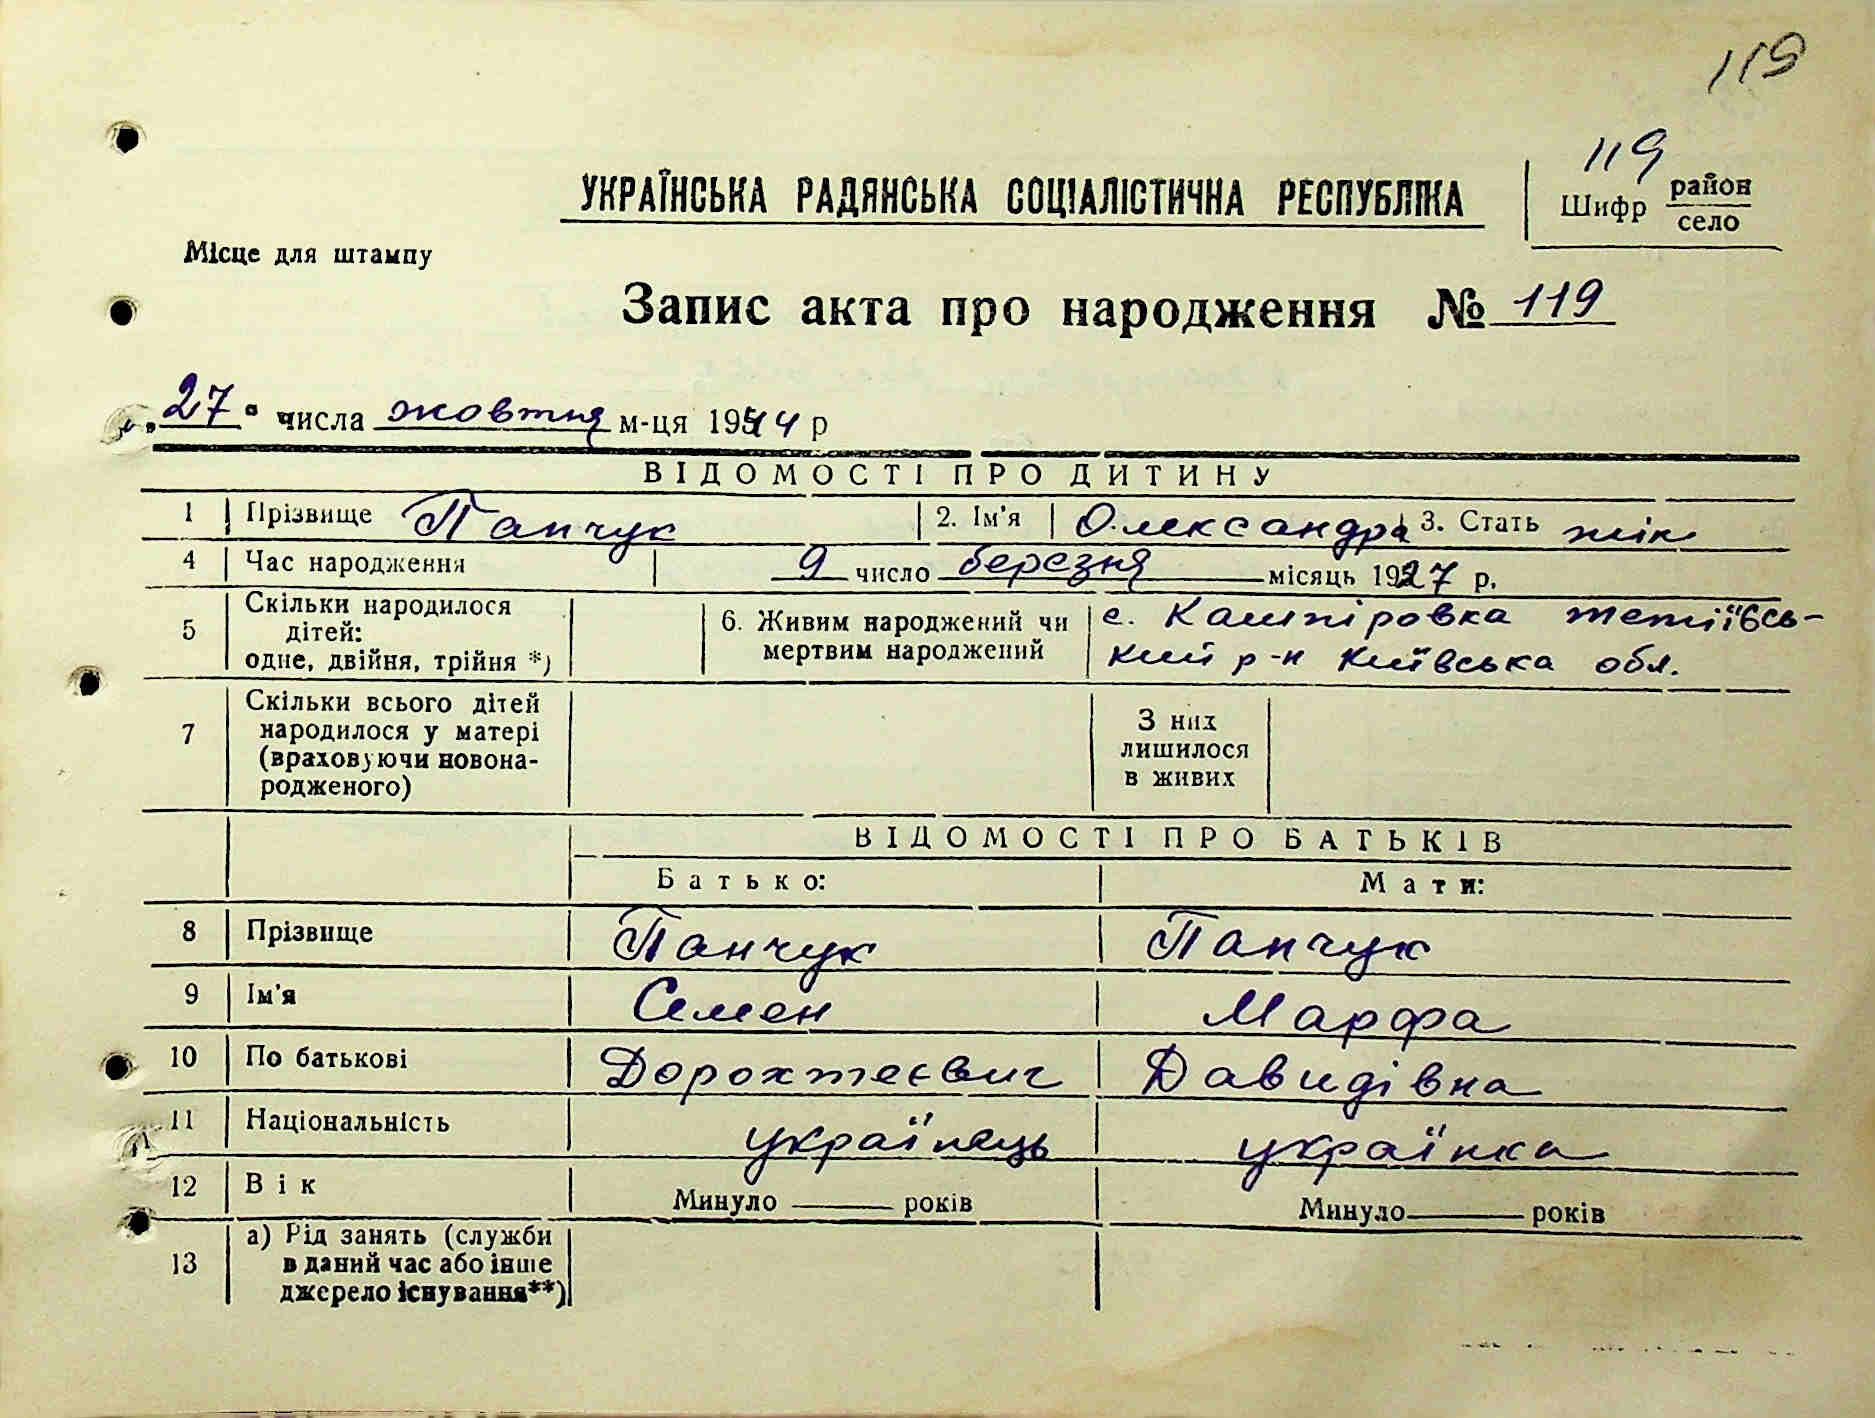 119
119
УКРАЇНСЬКА РАДЯНСЬКА СОЦІАЛІСТИЧНА РЕСПУБЛІКА
Шифр район
село
Місце для штампу
Запис акта про народження № 119
„27“ числа жовтня м-ця 1944 р
ВІДОМОСТІ ПРО ДИТИНУ
1 Прізвище Панчук 2. Ім'я Олександра 3. Стать жін
4 Час народження 9 число березня місяць 1927 р.
5 Скільки народилося дітей: одне, двійня, трійня *)
6. Живим народжений чи мертвим народжений
с. Кашпіровка тетіївсь-
кий р-н Київська обл.
7 Скільки всього дітей народилося у матері (враховуючи новонародженого)
З них лишилося в живих
ВІДОМОСТІ ПРО БАТЬКІВ
Батько: Мати:
8 Прізвище Панчук Панчук
9 Ім'я Семен Марфа
10 По батькові Дорохтеєвич Давидівна
11 Національність українець українка
12 Вік Минуло —— років Минуло —— років
13 а) Рід занять (служби в даний час або інше джерело існування**)